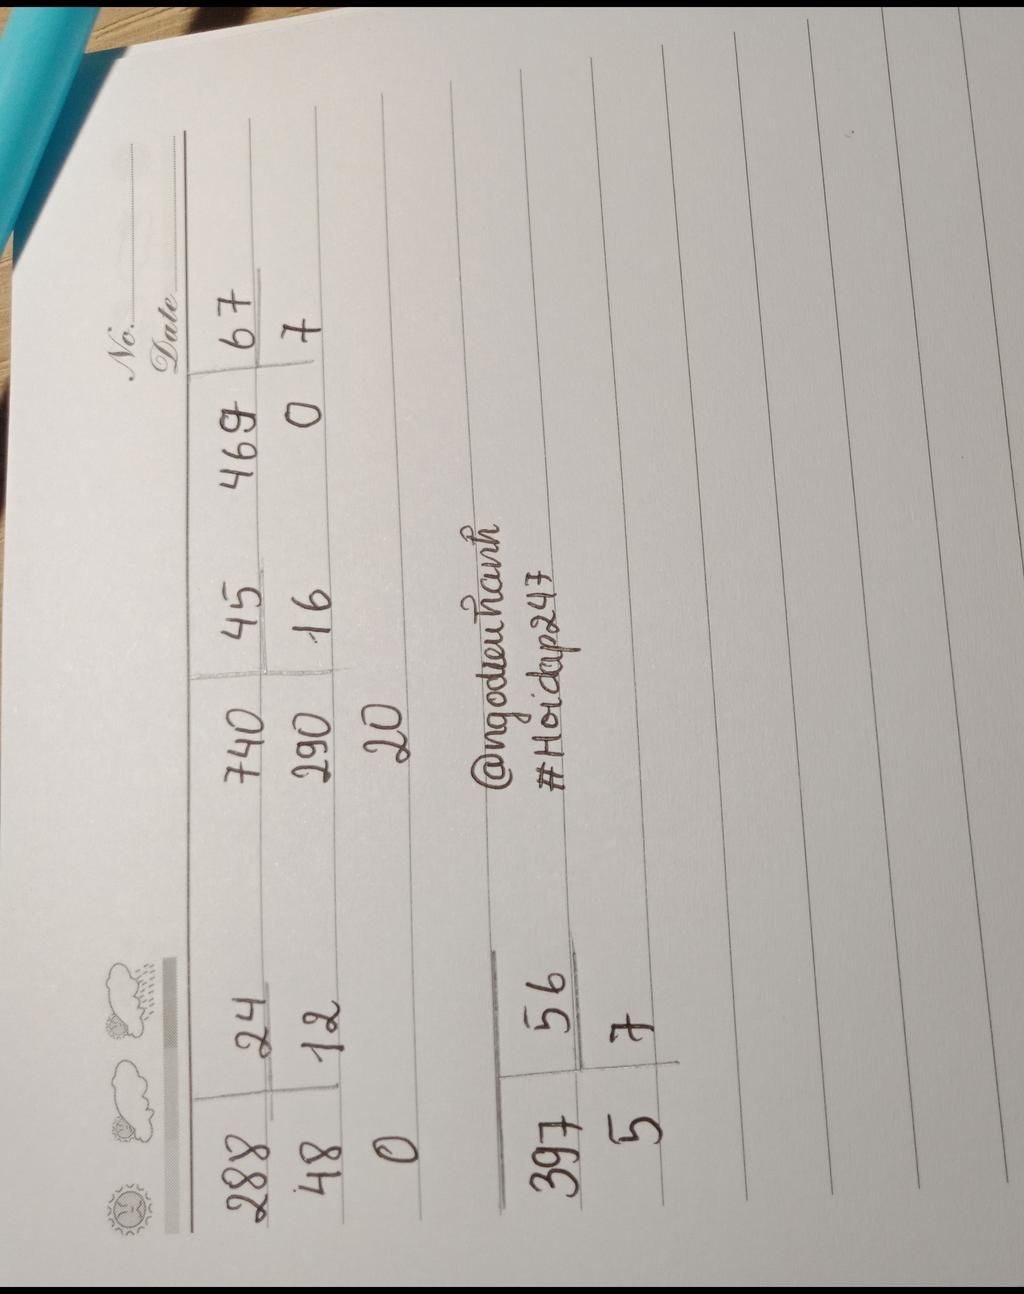 No.
Date
288 24 740 45 469 67
48 12 290 16 0 7
0 20
@ngodieuthanh
#Hoidap247
397 56
5 7